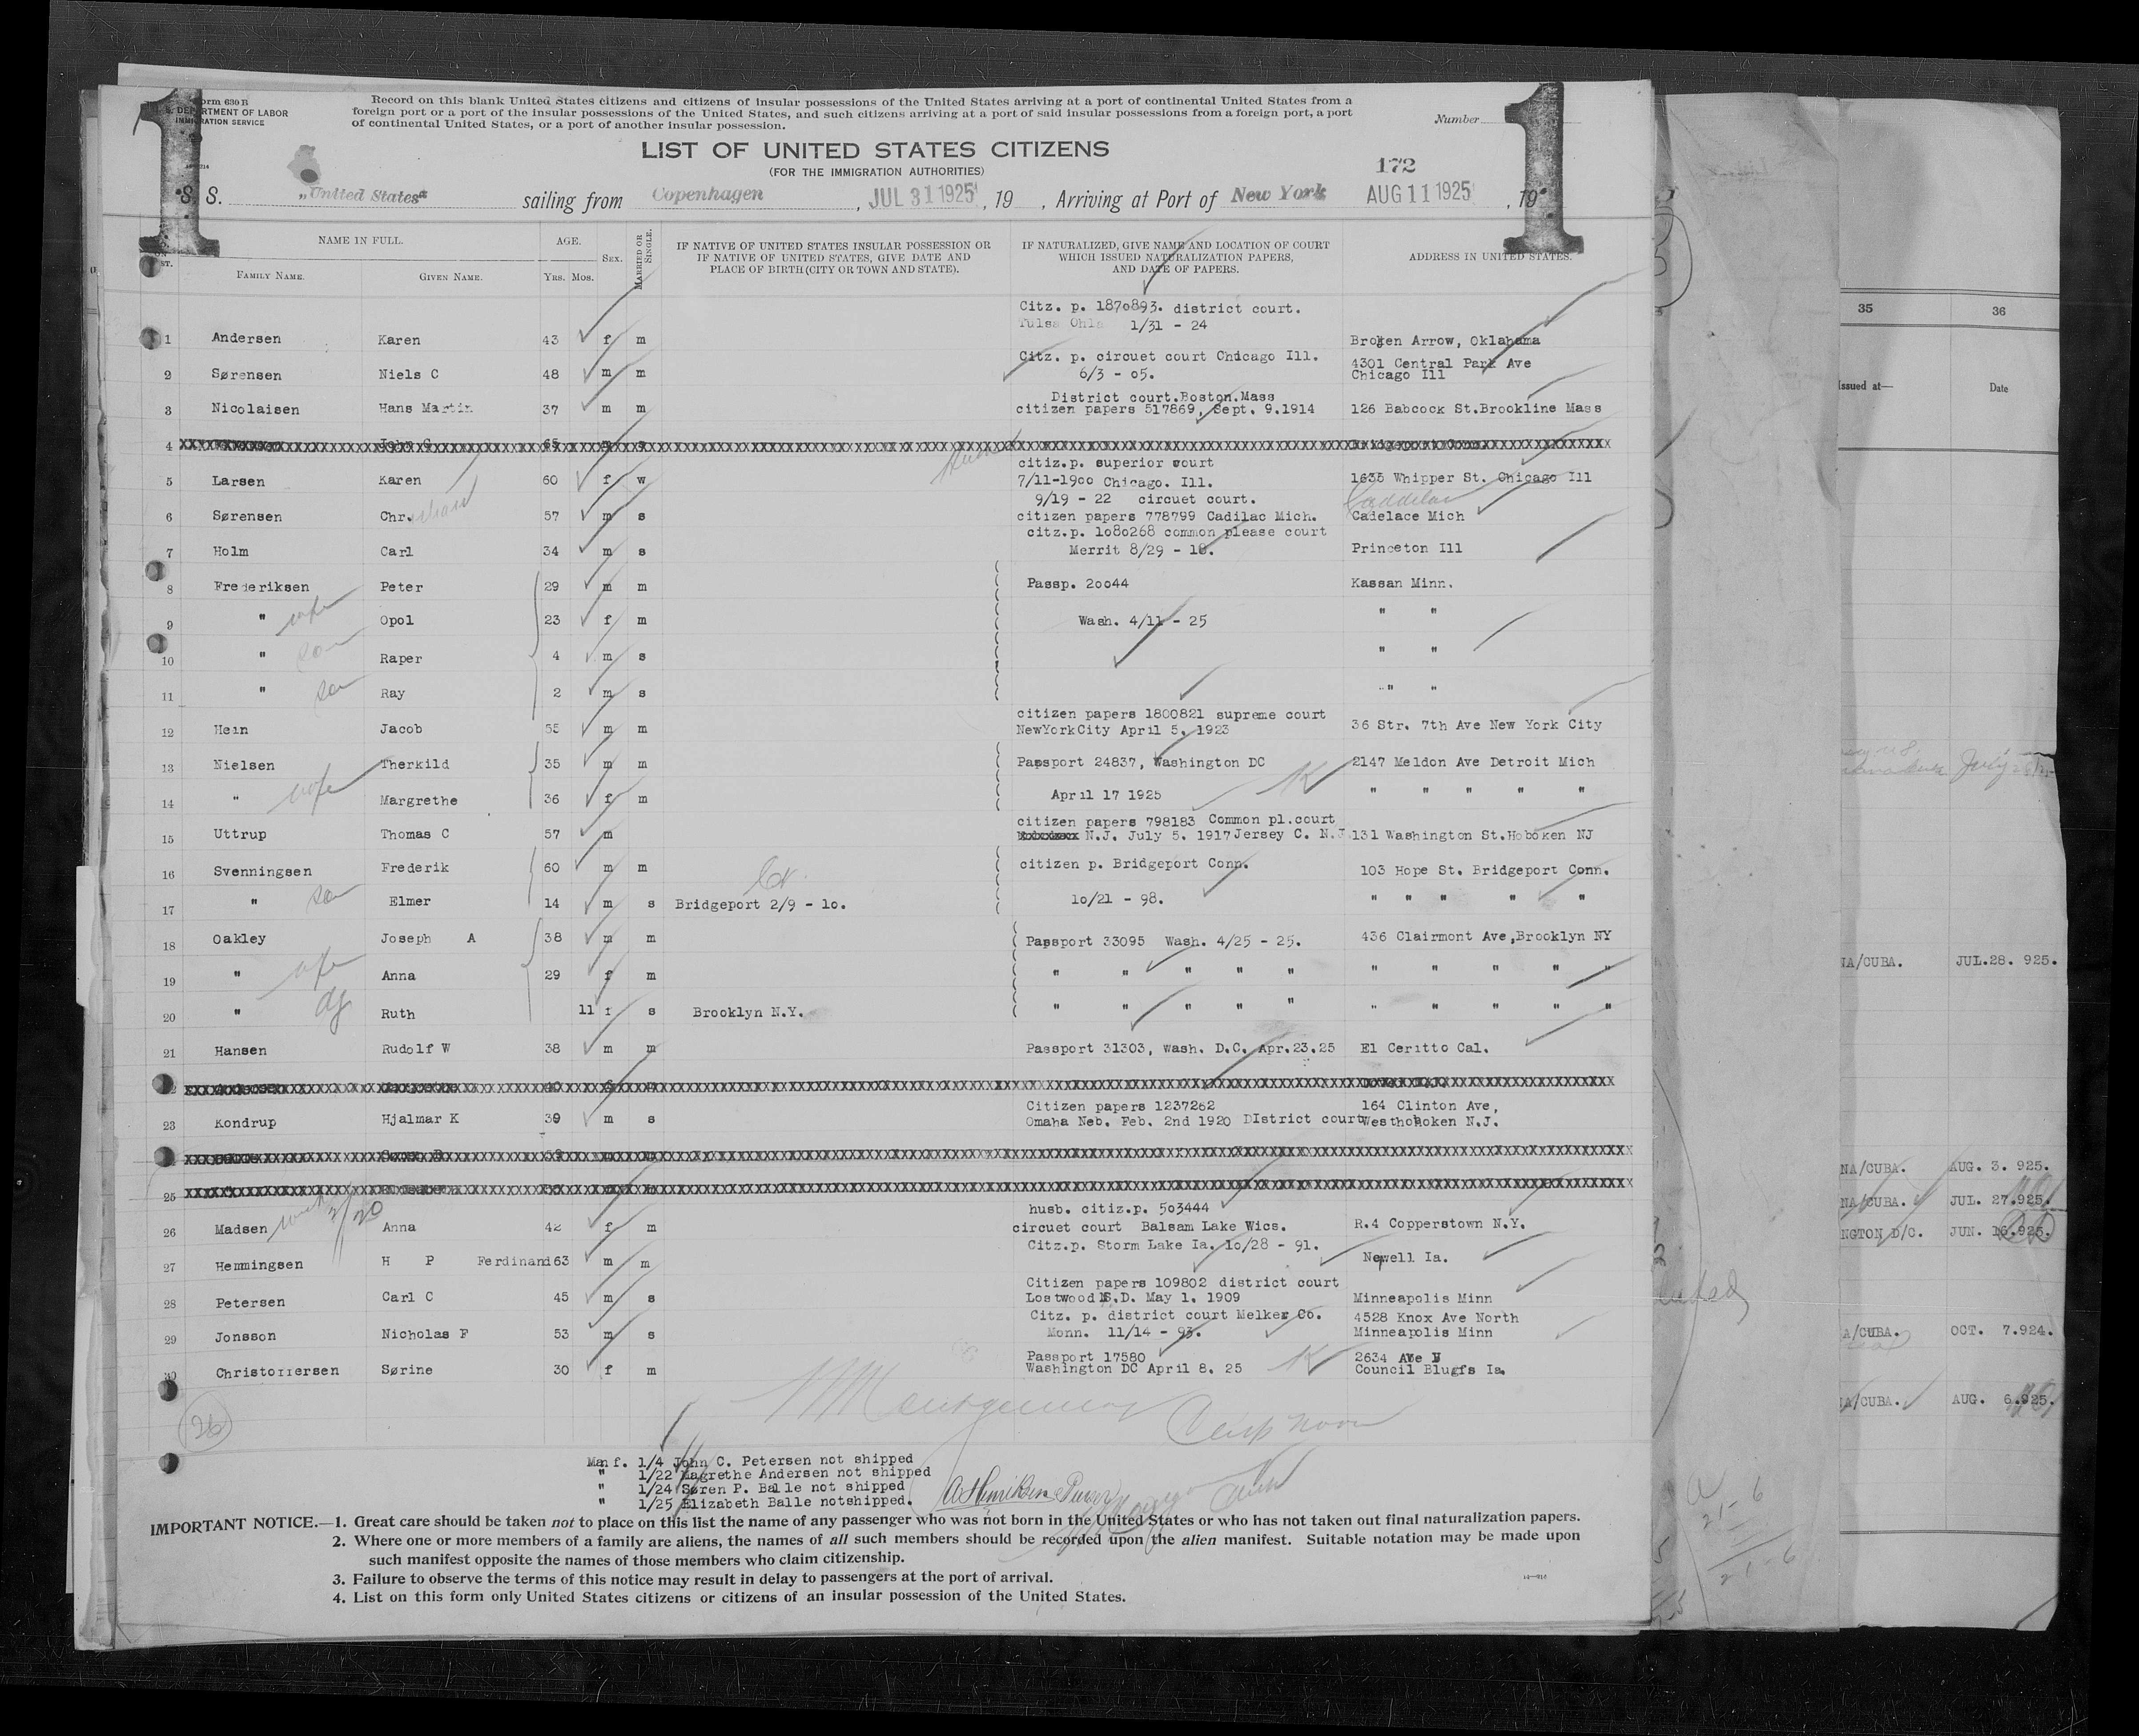 Form 630 B
U. S. DEPARTMENT OF LABOR
IMMIGRATION SERVICE
Record on this blank United States citizens and citizens of insular possessions of the United States arriving at a port of continental United States from a
foreign port or a port of the insular possessions of the United States, and such citizens arriving at a port of said insular possessions from a foreign port, a port
of continental United States, or a port of another insular possession.
Number
1 1
LIST OF UNITED STATES CITIZENS
(FOR THE IMMIGRATION AUTHORITIES)
172
S. S. "United States" sailing from Copenhagen, JUL 31 1925, 19 , Arriving at Port of New York AUG 11 1925, 19
NAME IN FULL. AGE. SEX. MARRIED OR SINGLE. IF NATIVE OF UNITED STATES INSULAR POSSESSION OR IF NATIVE OF UNITED STATES, GIVE DATE AND PLACE OF BIRTH (CITY OR TOWN AND STATE). IF NATURALIZED, GIVE NAME AND LOCATION OF COURT WHICH ISSUED NATURALIZATION PAPERS, AND DATE OF PAPERS. ADDRESS IN UNITED STATES.
FAMILY NAME. GIVEN NAME. YRS. MOS.
Citz. p. 1870893. district court.
Tulsa Okla 1/31 - 24
1 Andersen Karen 43 f m Broken Arrow, Oklahama
Citz. p. circuet court Chicago Ill. 4301 Central Park Ave
2 Sørensen Niels C 48 m m 6/3 - 05. Chicago Ill
District court.Boston.Mass
3 Nicolaisen Hans Martin 37 m m citizen papers 517869, Sept. 9.1914 126 Babcock St.Brookline Mass
4 John C 65 m s
citiz.p. superior court
5 Larsen Karen 60 f w 7/11-1900 Chicago. Ill. 1635 Whipper St. Chicago Ill
9/19 - 22 circuet court. Caddilac
6 Sørensen Chr. 57 m s citizen papers 778799 Cadilac Mich. Cadelace Mich
citz.p. 1080268 common please court
7 Holm Carl 34 m s Merrit 8/29 - 18. Princeton Ill
8 Frederiksen Peter 29 m m Passp. 20044 Kassan Minn.
9 " wife Opol 23 f m Wash. 4/11 - 25 " "
10 " son Raper 4 m s " "
11 " son Ray 2 m s " "
citizen papers 1800821 supreme court
12 Hein Jacob 55 m m NewYorkCity April 5. 1923 36 Str. 7th Ave New York City
13 Nielsen Therkild 35 m m Passport 24837, Washington DC 2147 Meldon Ave Detroit Mich
14 " wife Margrethe 36 f m April 17 1925 " " " " "
citizen papers 798183 Common pl.court
15 Uttrup Thomas C 57 m N.J. July 5. 1917 Jersey C. N.J. 131 Washington St.Hoboken NJ
16 Svenningsen Frederik 60 m m citizen p. Bridgeport Conn. 103 Hope St. Bridgeport Conn.
17 " son Elmer 14 m s Bridgeport 2/9 - 10. 10/21 - 98. " " " " "
18 Oakley Joseph A 38 m m Passport 33095 Wash. 4/25 - 25. 436 Clairmont Ave,Brooklyn NY
19 " wife Anna 29 f m " " " " " " " " " "
20 " dg Ruth 11 f s Brooklyn N.Y. " " " " " " " " " "
21 Hansen Rudolf W 38 m m Passport 31303, Wash. D.C. Apr.23.25 El Ceritto Cal.
22
Citizen papers 1237262 164 Clinton Ave,
23 Kondrup Hjalmar K 39 m s Omaha Neb. Feb. 2nd 1920 District court Westhoboken N.J.
24
25
husb. citiz.p. 503444
26 Madsen Anna 42 f m circuet court Balsam Lake Wics. R.4 Copperstown N.Y.
27 Hemmingsen H P Ferdinand 63 m m Citz.p. Storm Lake Ia. 10/28 - 91. Newell Ia.
Citizen papers 109802 district court
28 Petersen Carl C 45 m s Lostwood S.D. May 1. 1909 Minneapolis Minn
Citz. p. district court Melker Co. 4528 Knox Ave North
29 Jonsson Nicholas F 53 m s Monn. 11/14 - 93. Minneapolis Minn
Passport 17580 2634 Ave
30 Christoffersen Sørine 30 f m Washington DC April 8. 25 Council Blugfs Ia.
26
Man f. 1/4 John C. Petersen not shipped
" 1/22 Magrethe Andersen not shipped
" 1/24 Søren P. Balle not shipped
" 1/25 Elizabeth Balle notshipped.
IMPORTANT NOTICE.—1. Great care should be taken not to place on this list the name of any passenger who was not born in the United States or who has not taken out final naturalization papers.
2. Where one or more members of a family are aliens, the names of all such members should be recorded upon the alien manifest. Suitable notation may be made upon
such manifest opposite the names of those members who claim citizenship.
3. Failure to observe the terms of this notice may result in delay to passengers at the port of arrival.
4. List on this form only United States citizens or citizens of an insular possession of the United States.
35 36
Issued at— Date
NA/CUBA. JUL.28. 925.
NA/CUBA. AUG. 3. 925.
NA/CUBA. JUL. 27.925.
NGTON D/C. JUN. 16.925.
A/CUBA. OCT. 7.924.
A/CUBA. AUG. 6.925.